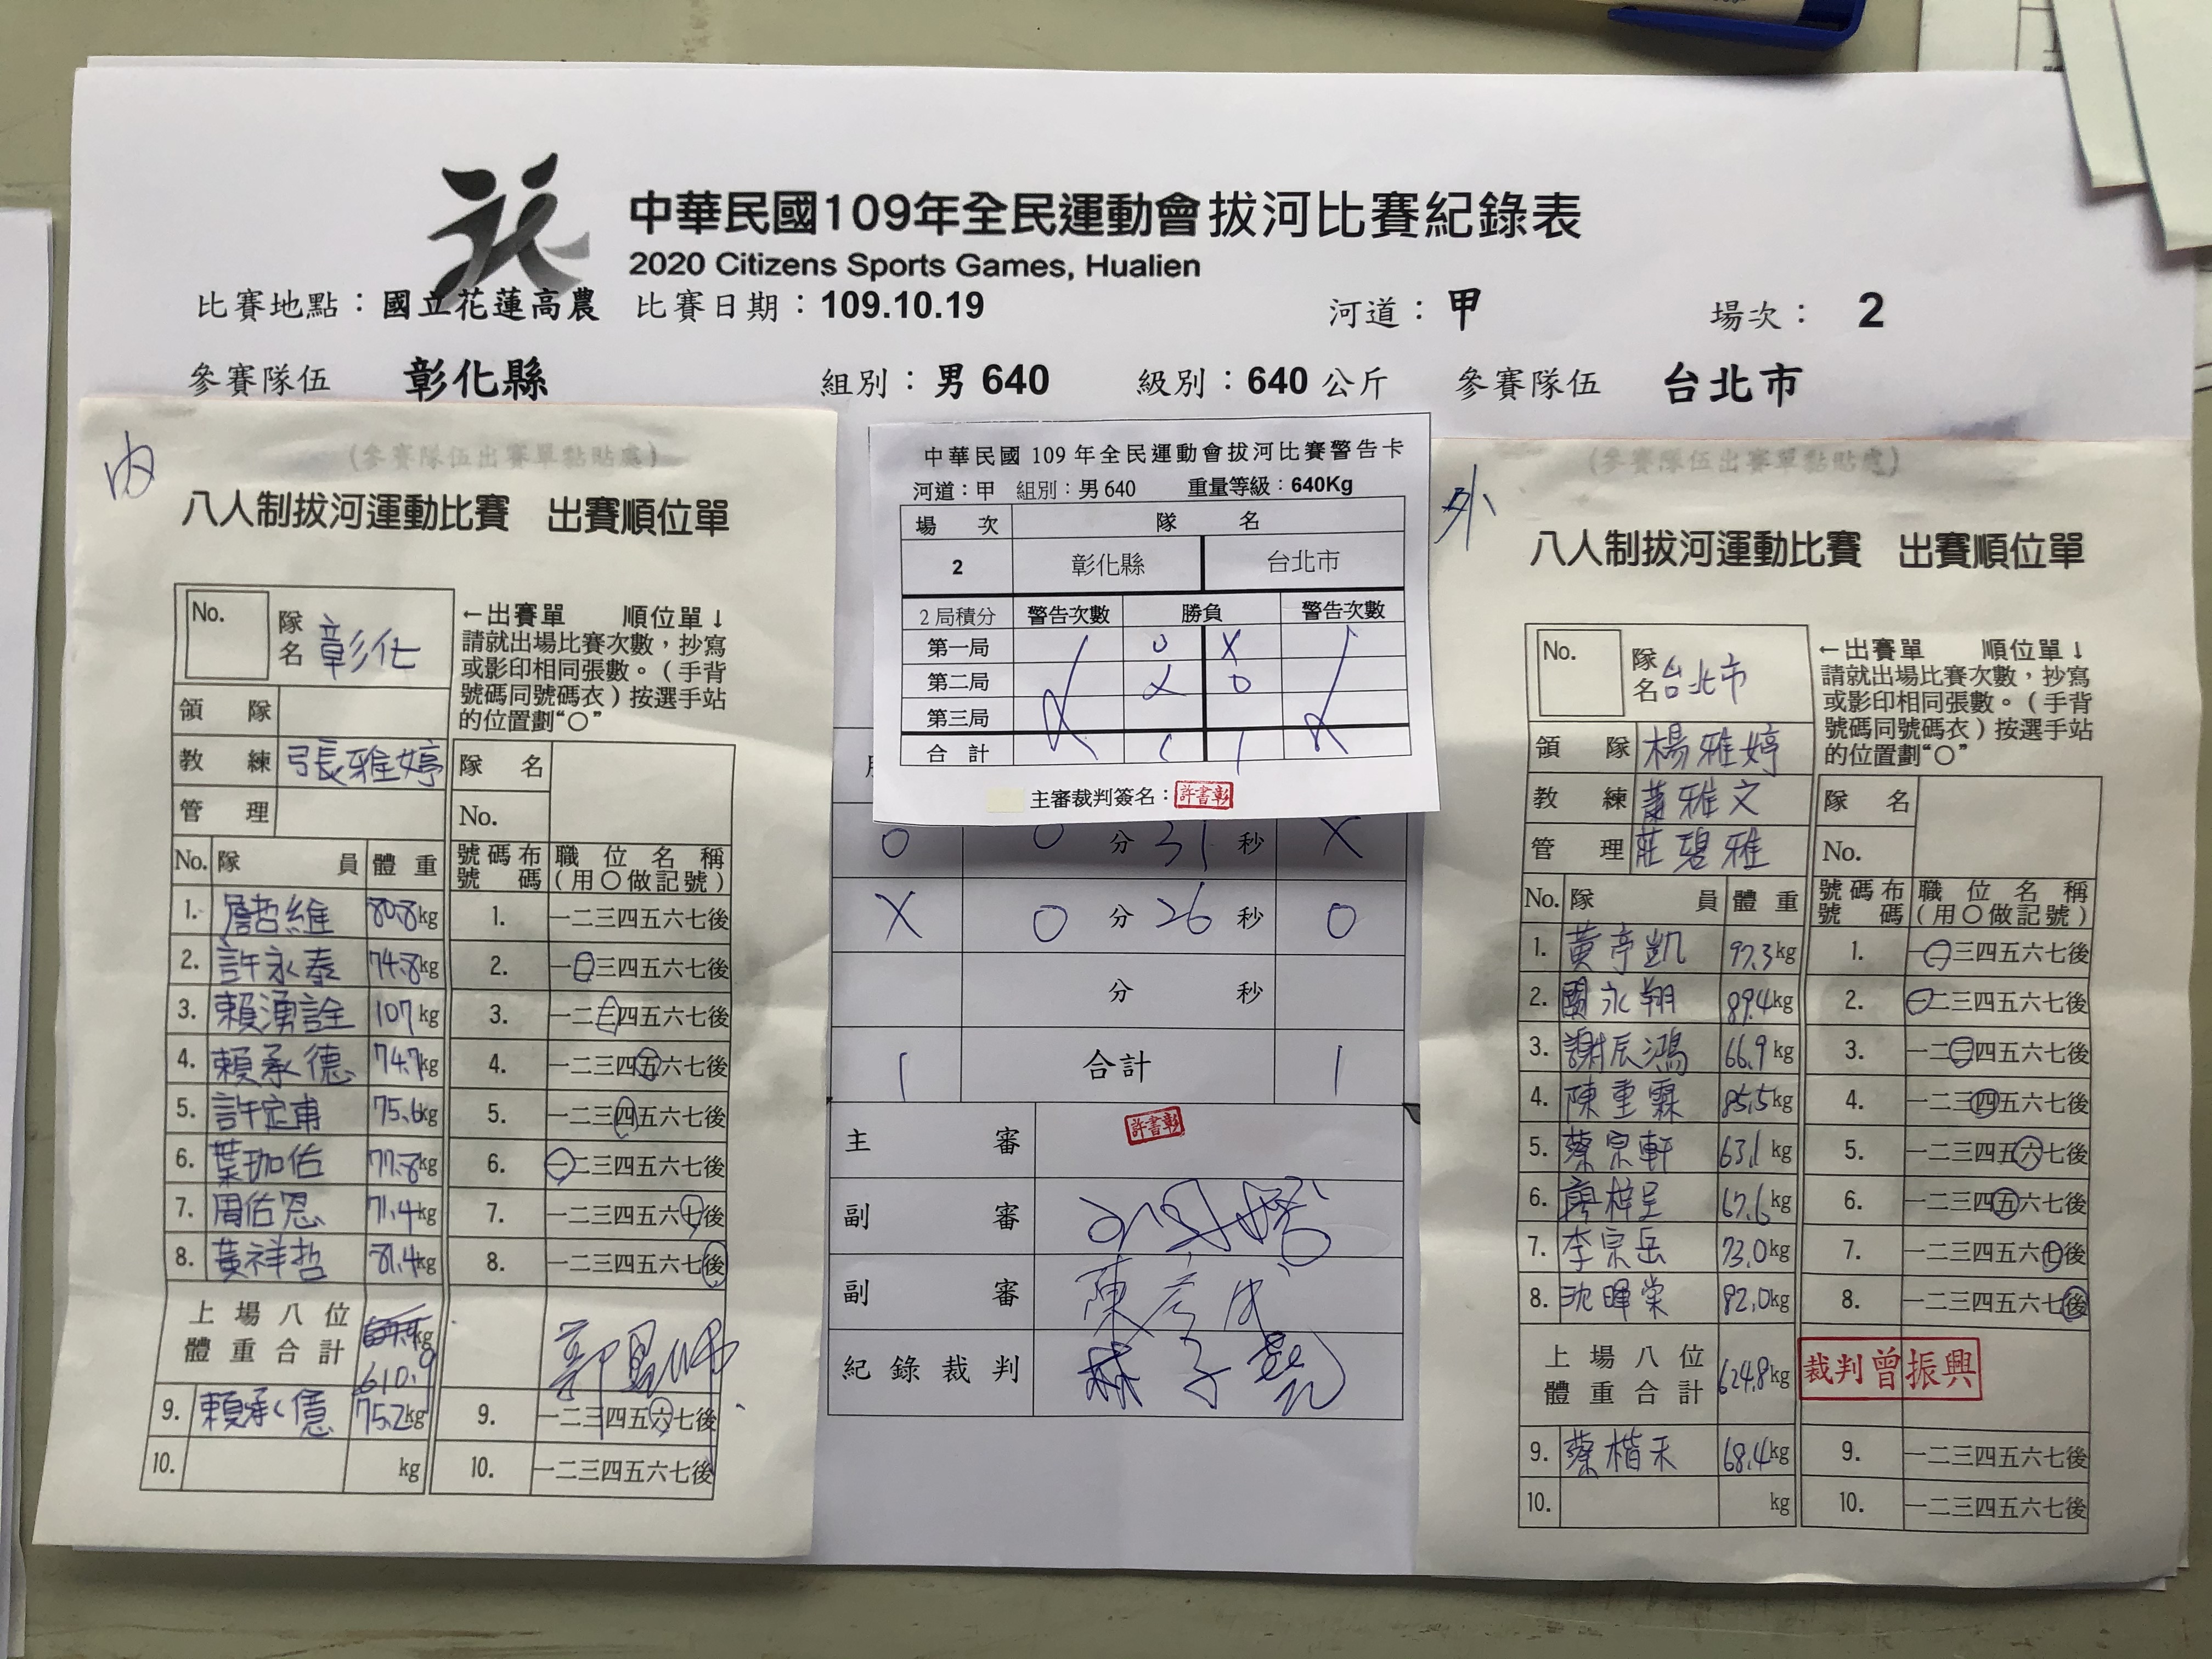 中華民國109年全民運動會拔河比賽紀錄表
2020 Citizens Sports Games, Hualien
比賽地點：國立花蓮高農 比賽日期：109.10.19 河道：甲 場次： 2
參賽隊伍 彰化縣 組別：男 640 級別：640 公斤 參賽隊伍 台北市
內
(參賽隊伍出賽單黏貼處)
八人制拔河運動比賽 出賽順位單
No. 隊名 彰化
←出賽單 順位單↓
請就出場比賽次數，抄寫
或影印相同張數。(手背
號碼同號碼衣)按選手站
的位置劃“○”
領 隊
教 練 張雅婷
管 理
隊 名
No.
No. 隊 員 體 重 號碼布號碼 職位名稱(用○做記號)
1. 詹哲維 80.8kg 1. 一二三四五六七後
2. 許永泰 74.8kg 2. 一二三四五六七後
3. 賴湧詮 107kg 3. 一二三四五六七後
4. 賴承德 74.7kg 4. 一二三四五六七後
5. 許定甫 75.6kg 5. 一二三四五六七後
6. 葉珈佑 77.8kg 6. 一二三四五六七後
7. 周佑恩 71.4kg 7. 一二三四五六七後
8. 黃祥哲 81.4kg 8. 一二三四五六七後
上場八位
體重合計 kg
610.9
9. 賴承億 75.2kg 9. 一二三四五六七後
10. kg 10. 一二三四五六七後
中華民國 109 年全民運動會拔河比賽警告卡
河道：甲 組別：男 640 重量等級：640Kg
場 次 隊 名
2 彰化縣 台北市
2 局積分 警告次數 勝負 警告次數
第一局 O X
第二局 X O
第三局
合 計 1 1
主審裁判簽名：許書彰
O 0 分 31 秒 X
X 0 分 26 秒 O
分 秒
1 合計 1
主 審 許書彰
副 審
副 審 陳彥成
紀錄裁判 林子
外
(參賽隊伍出賽單黏貼處)
八人制拔河運動比賽 出賽順位單
No. 隊名 台北市
←出賽單 順位單↓
請就出場比賽次數，抄寫
或影印相同張數。(手背
號碼同號碼衣)按選手站
的位置劃“○”
領 隊 楊雅婷
教 練 蕭雅文
管 理 莊碧雅
隊 名
No.
No. 隊 員 體 重 號碼布號碼 職位名稱(用○做記號)
1. 黃亭凱 97.3kg 1. 一二三四五六七後
2. 關永翔 89.4kg 2. 一二三四五六七後
3. 謝辰鴻 66.9kg 3. 一二三四五六七後
4. 陳重霖 85.5kg 4. 一二三四五六七後
5. 蔡宗軒 63.1kg 5. 一二三四五六七後
6. 廖梓呈 67.6kg 6. 一二三四五六七後
7. 李宗岳 73.0kg 7. 一二三四五六七後
8. 沈暐棠 82.0kg 8. 一二三四五六七後
上場八位
體重合計 624.8kg 裁判曾振興
9. 蔡楷禾 68.4kg 9. 一二三四五六七後
10. kg 10. 一二三四五六七後